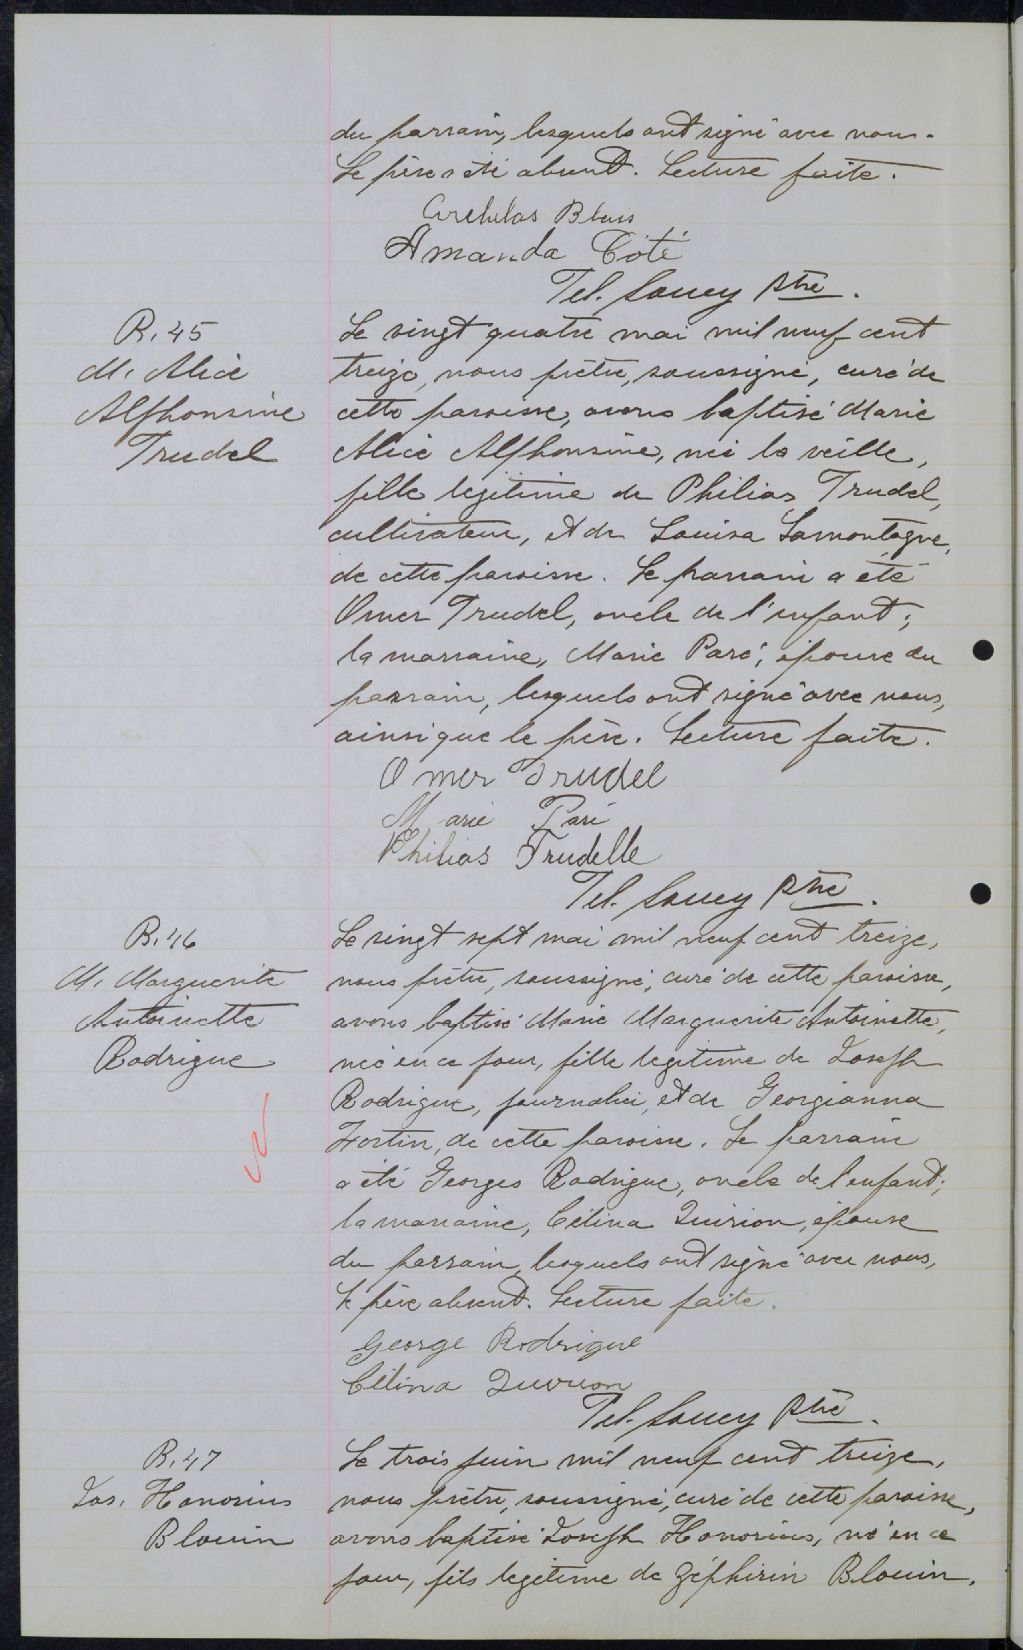 du parrain, lesquels ont signé avec nous.
Le père a été absent. Lecture faite.
Archelas Blais
Amanda Côté
Tel. Soucy Ptre.
B. 45
M. Alice
Alphonsine
Trudel
Le vingt quatre mai mil neuf cent
treize, nous prêtre, soussigné, curé de
cette paroisse, avons baptisé Marie
Alice Alphonsine, née la veille,
fille legitime de Philias Trudel,
cultivateur, et de Louisa Lamontagne,
de cette paroisse. Le parrain a été
Omer Trudel, oncle de l'enfant;
la marraine, Marie Paré, épouse du
parrain, lesquels ont signé avec nous,
ainsi que le père. Lecture faite.
Omer Trudel
Marie Paré
Philias Trudelle
Tel. Soucy Ptre.
B. 46
M. Marguerite
Antoinette
Rodrigue
Le vingt sept mai mil neuf cent treize,
nous prêtre, soussigné, curé de cette paroisse,
avons baptisé Marie Marguerite Antoinette,
née en ce jour, fille legitime de Joseph
Rodrigue, journalier, et de Georgianna
Fortin, de cette paroisse. Le parrain
a été Georges Rodrigue, oncle de l'enfant;
la marraine, Célina Quirion, épouse
du parrain, lesquels ont signé avec nous,
le père absent. Lecture faite.
George Rodrigue
Célina Quirion
Tel. Soucy Ptre.
B. 47
Jos. Honorius
Blouin
Le trois juin mil neuf cent treize,
nous prêtre, soussigné, curé de cette paroisse,
avons baptisé Joseph Honorius, né en ce
jour, fils legitime de Zéphirin Blouin,